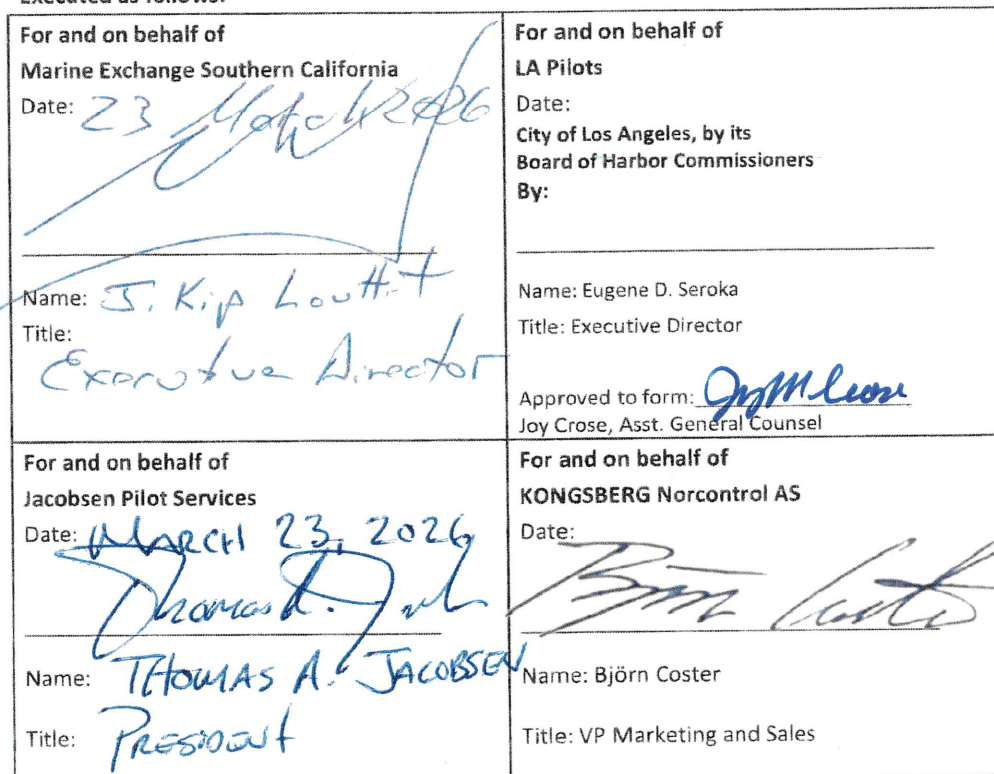 Executed as follows:
For and on behalf of
Marine Exchange Southern California
Date: 23 March 2026
Name: J. Kip Louttit
Title:
Executive Director
For and on behalf of
LA Pilots
Date:
City of Los Angeles, by its
Board of Harbor Commissioners
By:
Name: Eugene D. Seroka
Title: Executive Director
Approved to form: Joy M Crose
Joy Crose, Asst. General Counsel
For and on behalf of
Jacobsen Pilot Services
Date: MARCH 23, 2026
Thomas A. Jacobsen
Name: THOMAS A. JACOBSEN
Title: PRESIDENT
For and on behalf of
KONGSBERG Norcontrol AS
Date:
Björn Coster
Name: Björn Coster
Title: VP Marketing and Sales